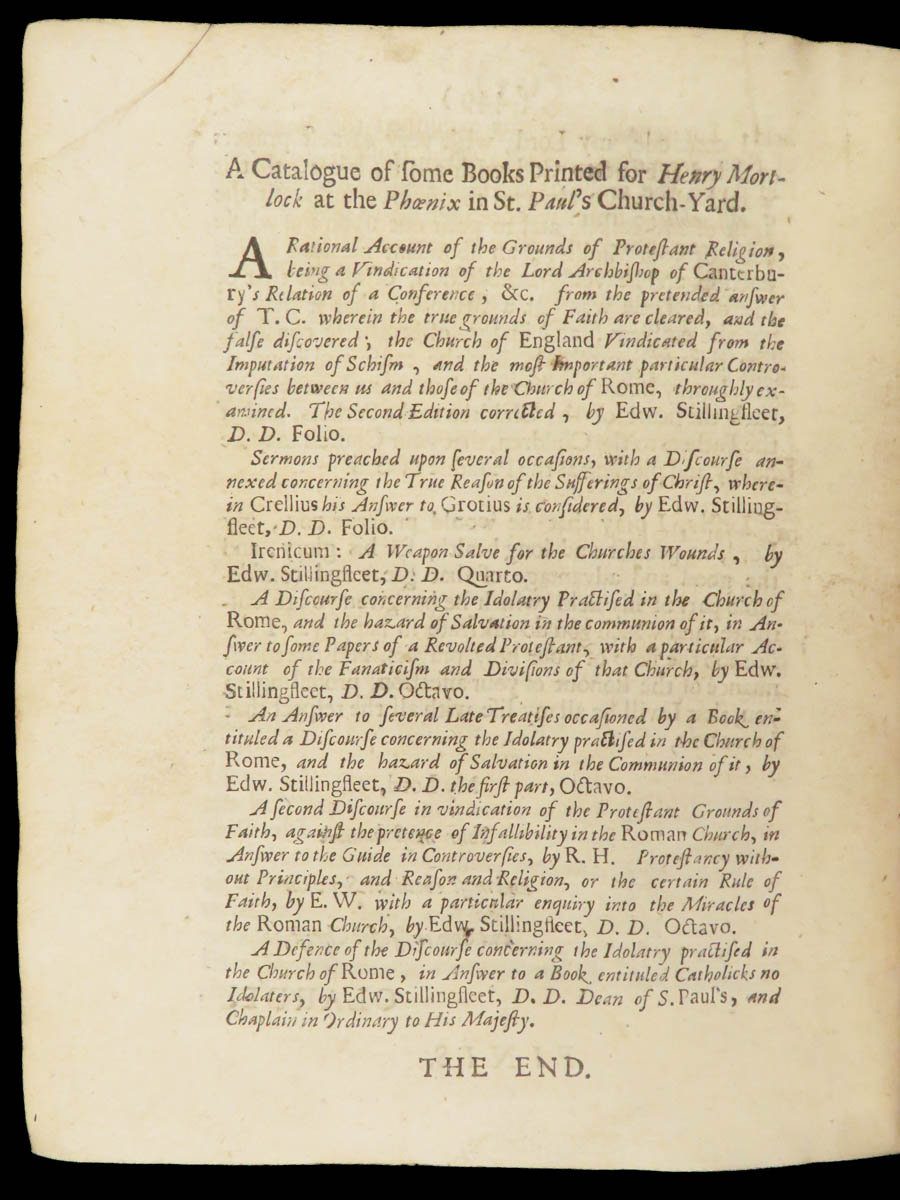 A Catalogue of ſome Books Printed for Henry Mort-
lock at the Phœnix in St. Paul's Church-Yard.
A Rational Account of the Grounds of Proteſtant Religion,
being a Vindication of the Lord Archbiſhop of Canterbu-
ry's Relation of a Conference, &c. from the pretended anſwer
of T. C. wherein the true grounds of Faith are cleared, and the
falſe diſcovered; the Church of England Vindicated from the
Imputation of Schiſm, and the moſt Important particular Contro-
verſies between us and thoſe of the Church of Rome, throughly ex-
amined. The Second Edition corrected, by Edw. Stillingfleet,
D. D. Folio.
Sermons preached upon ſeveral occaſions, with a Diſcourſe an-
nexed concerning the True Reaſon of the Sufferings of Chriſt, where-
in Crellius his Anſwer to Grotius is conſidered, by Edw. Stilling-
fleet, D. D. Folio.
Irenicum: A Weapon Salve for the Churches Wounds, by
Edw. Stillingfleet, D. D. Quarto.
A Diſcourſe concerning the Idolatry Practiſed in the Church of
Rome, and the hazard of Salvation in the communion of it, in An-
ſwer to ſome Papers of a Revolted Proteſtant, with a particular Ac-
count of the Fanaticiſm and Diviſions of that Church, by Edw.
Stillingfleet, D. D. Octavo.
An Anſwer to ſeveral Late Treatiſes occaſioned by a Book en-
tituled a Diſcourſe concerning the Idolatry practiſed in the Church of
Rome, and the hazard of Salvation in the Communion of it, by
Edw. Stillingfleet, D. D. the firſt part, Octavo.
A ſecond Diſcourſe in vindication of the Proteſtant Grounds of
Faith, againſt the pretence of Infallibility in the Roman Church, in
Anſwer to the Guide in Controverſies, by R. H. Proteſtancy with-
out Principles, and Reaſon and Religion, or the certain Rule of
Faith, by E. W. with a particular enquiry into the Miracles of
the Roman Church, by Edw. Stillingfleet, D. D. Octavo.
A Defence of the Diſcourſe concerning the Idolatry practiſed in
the Church of Rome, in Anſwer to a Book entituled Catholicks no
Idolaters, by Edw. Stillingfleet, D. D. Dean of S. Paul's, and
Chaplain in Ordinary to His Majeſty.
THE END.